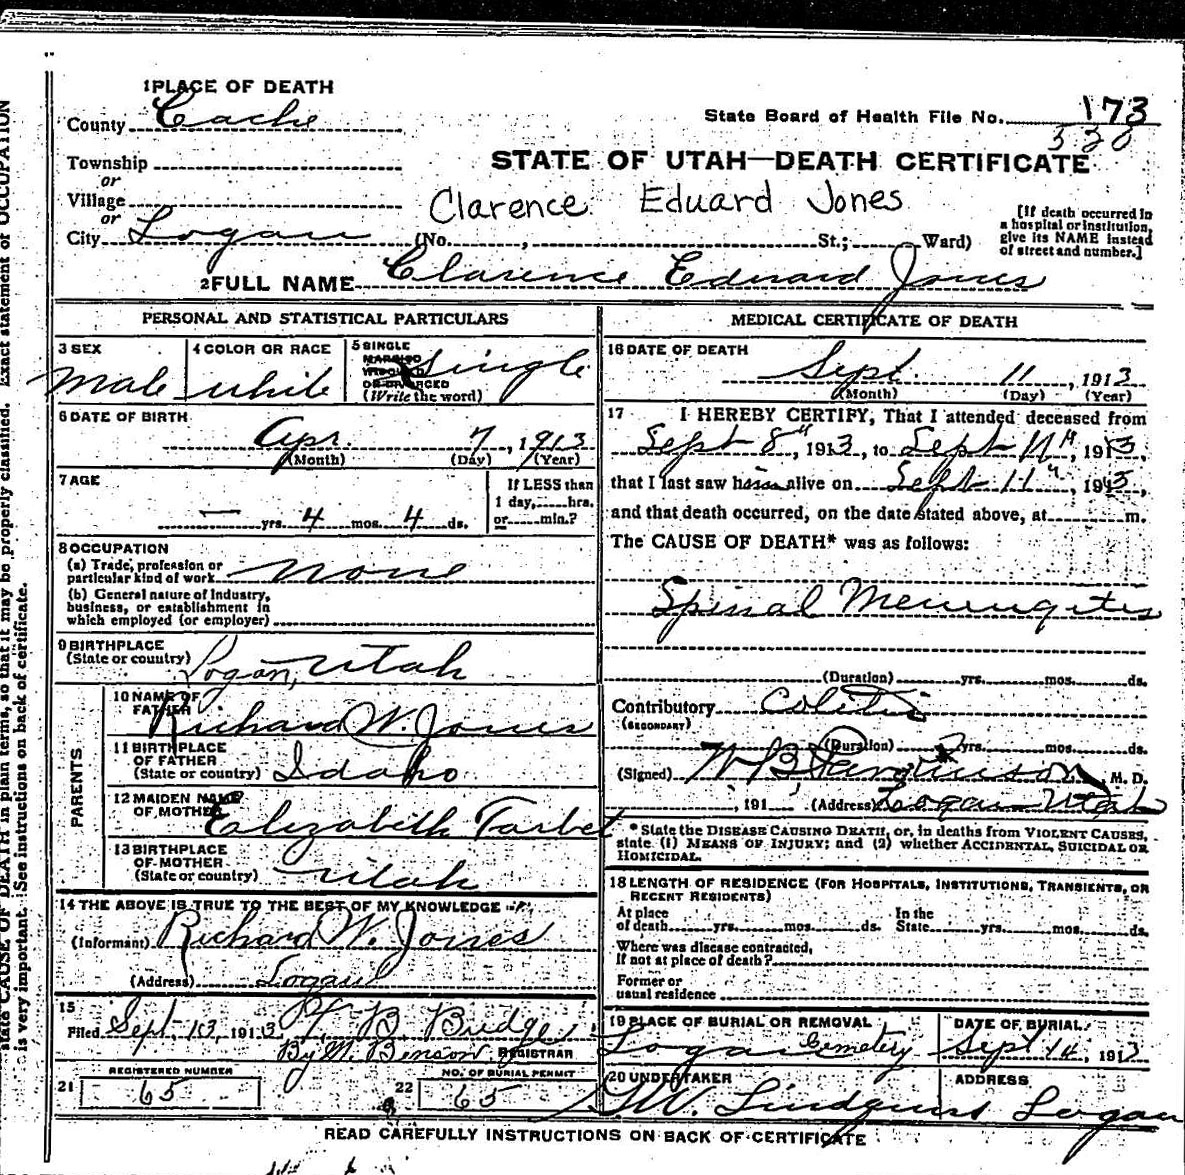 1 PLACE OF DEATH
County Cache
State Board of Health File No. 173
520
Township
or
STATE OF UTAH—DEATH CERTIFICATE
Village
or
Clarence Eduard Jones
City Logan (No. , St.; Ward)
[If death occurred in
a hospital or institution,
give its NAME instead
of street and number.]
2 FULL NAME Clarence Edward Jones
PERSONAL AND STATISTICAL PARTICULARS
3 SEX
male
4 COLOR OR RACE
white
5 SINGLE
MARRIED
WIDOWED
OR DIVORCED
(Write the word)
Single
6 DATE OF BIRTH
Apr. 7, 1913
(Month) (Day) (Year)
7 AGE
— yrs. 4 mos. 4 ds.
If LESS than
1 day, hrs.
or min.?
8 OCCUPATION
(a) Trade, profession or
particular kind of work none
(b) General nature of Industry,
business, or establishment in
which employed (or employer)
9 BIRTHPLACE
(State or country) Logan, Utah
PARENTS
10 NAME OF
FATHER Richard W. Jones
11 BIRTHPLACE
OF FATHER
(State or country) Idaho
12 MAIDEN NAME
OF MOTHER Elizabeth Tarbet
13 BIRTHPLACE
OF MOTHER
(State or country) Utah
14 THE ABOVE IS TRUE TO THE BEST OF MY KNOWLEDGE
(Informant) Richard W. Jones
(Address) Logan
15
Filed Sept. 13, 1913 B Budge
By M. Benson REGISTRAR
21 REGISTERED NUMBER
65
22 NO. OF BURIAL PERMIT
65
MEDICAL CERTIFICATE OF DEATH
16 DATE OF DEATH
Sept. 11, 1913
(Month) (Day) (Year)
17 I HEREBY CERTIFY, That I attended deceased from
Sept 8th, 1913, to Sept 11th, 1913,
that I last saw him alive on Sept 11th, 1913,
and that death occurred, on the date stated above, at m.
The CAUSE OF DEATH* was as follows:
Spinal Meningitis
(Duration) yrs. mos. ds.
Contributory Colitis
(SECONDARY)
(Duration) yrs. mos. ds.
(Signed) W B Parkinson, M. D.
, 191 (Address) Logan Utah
* State the DISEASE CAUSING DEATH, or, in deaths from VIOLENT CAUSES,
state (1) MEANS OF INJURY; and (2) whether ACCIDENTAL, SUICIDAL OR
HOMICIDAL.
18 LENGTH OF RESIDENCE (FOR HOSPITALS, INSTITUTIONS, TRANSIENTS, OR
RECENT RESIDENTS)
At place
of death yrs. mos. ds.
In the
State yrs. mos. ds.
Where was disease contracted,
If not at place of death?
Former or
usual residence
19 PLACE OF BURIAL OR REMOVAL
Logan Cemetery
DATE OF BURIAL
Sept 14, 1913
20 UNDERTAKER
Lindquist
ADDRESS
Logan
READ CAREFULLY INSTRUCTIONS ON BACK OF CERTIFICATE
state CAUSE OF DEATH in plain terms, so that it may be properly classified. Exact statement of OCCUPATION
is very important. See instructions on back of certificate.